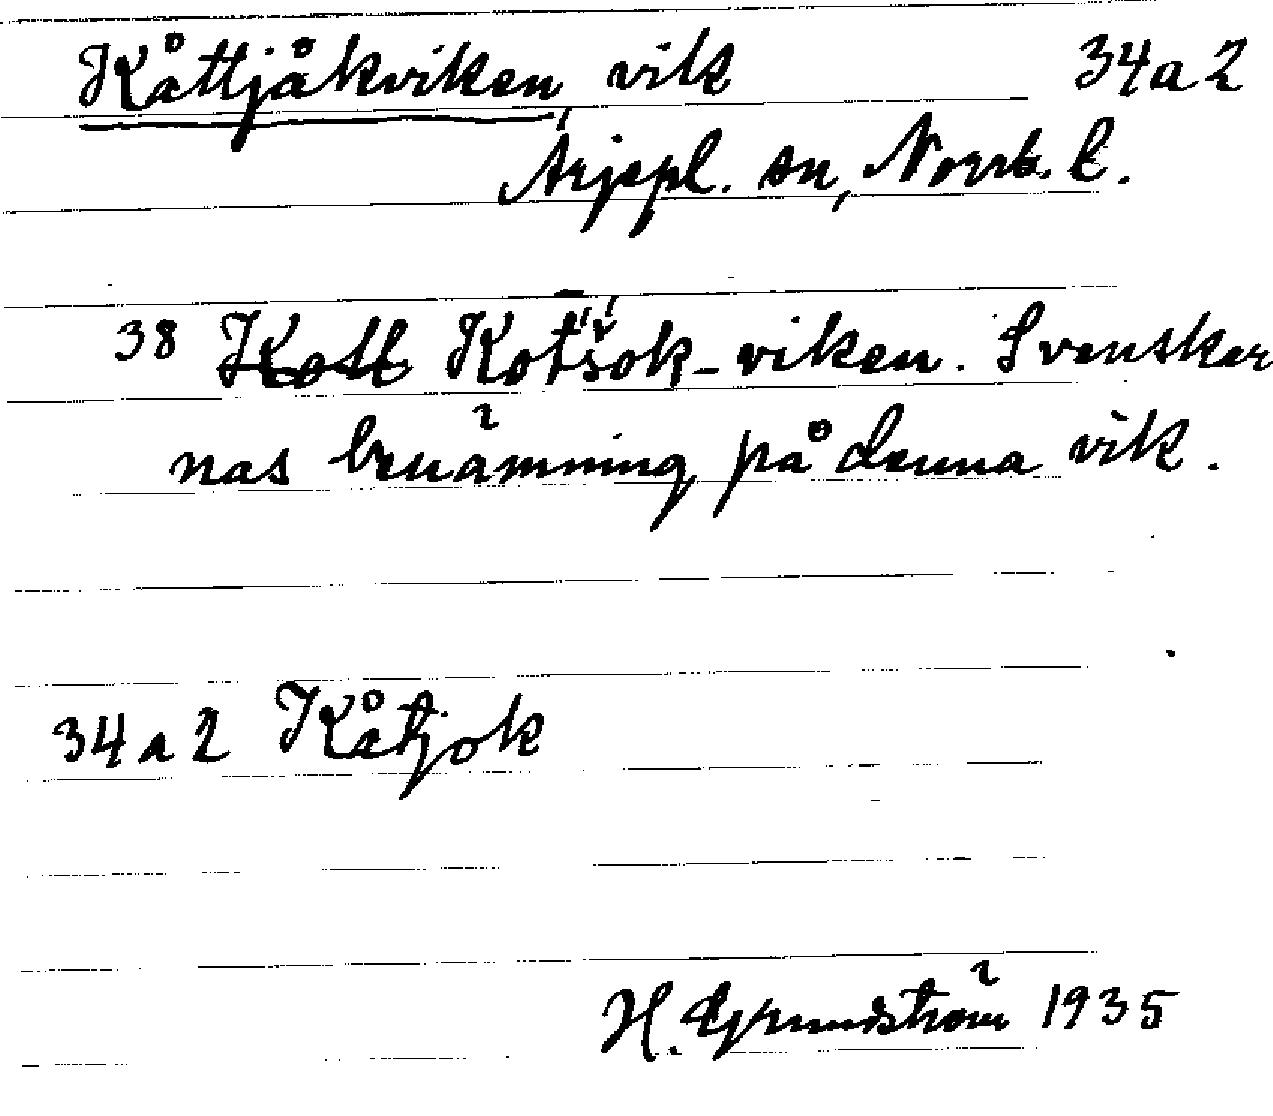 Kåttjåkviken, vik 34a2
Arjepl. sn, Norrb. l.
38 Kott Kot́šok-viken. Svensker
nas benämning på denna vik.
34a2 Kåtjok
H. Grundström 1935